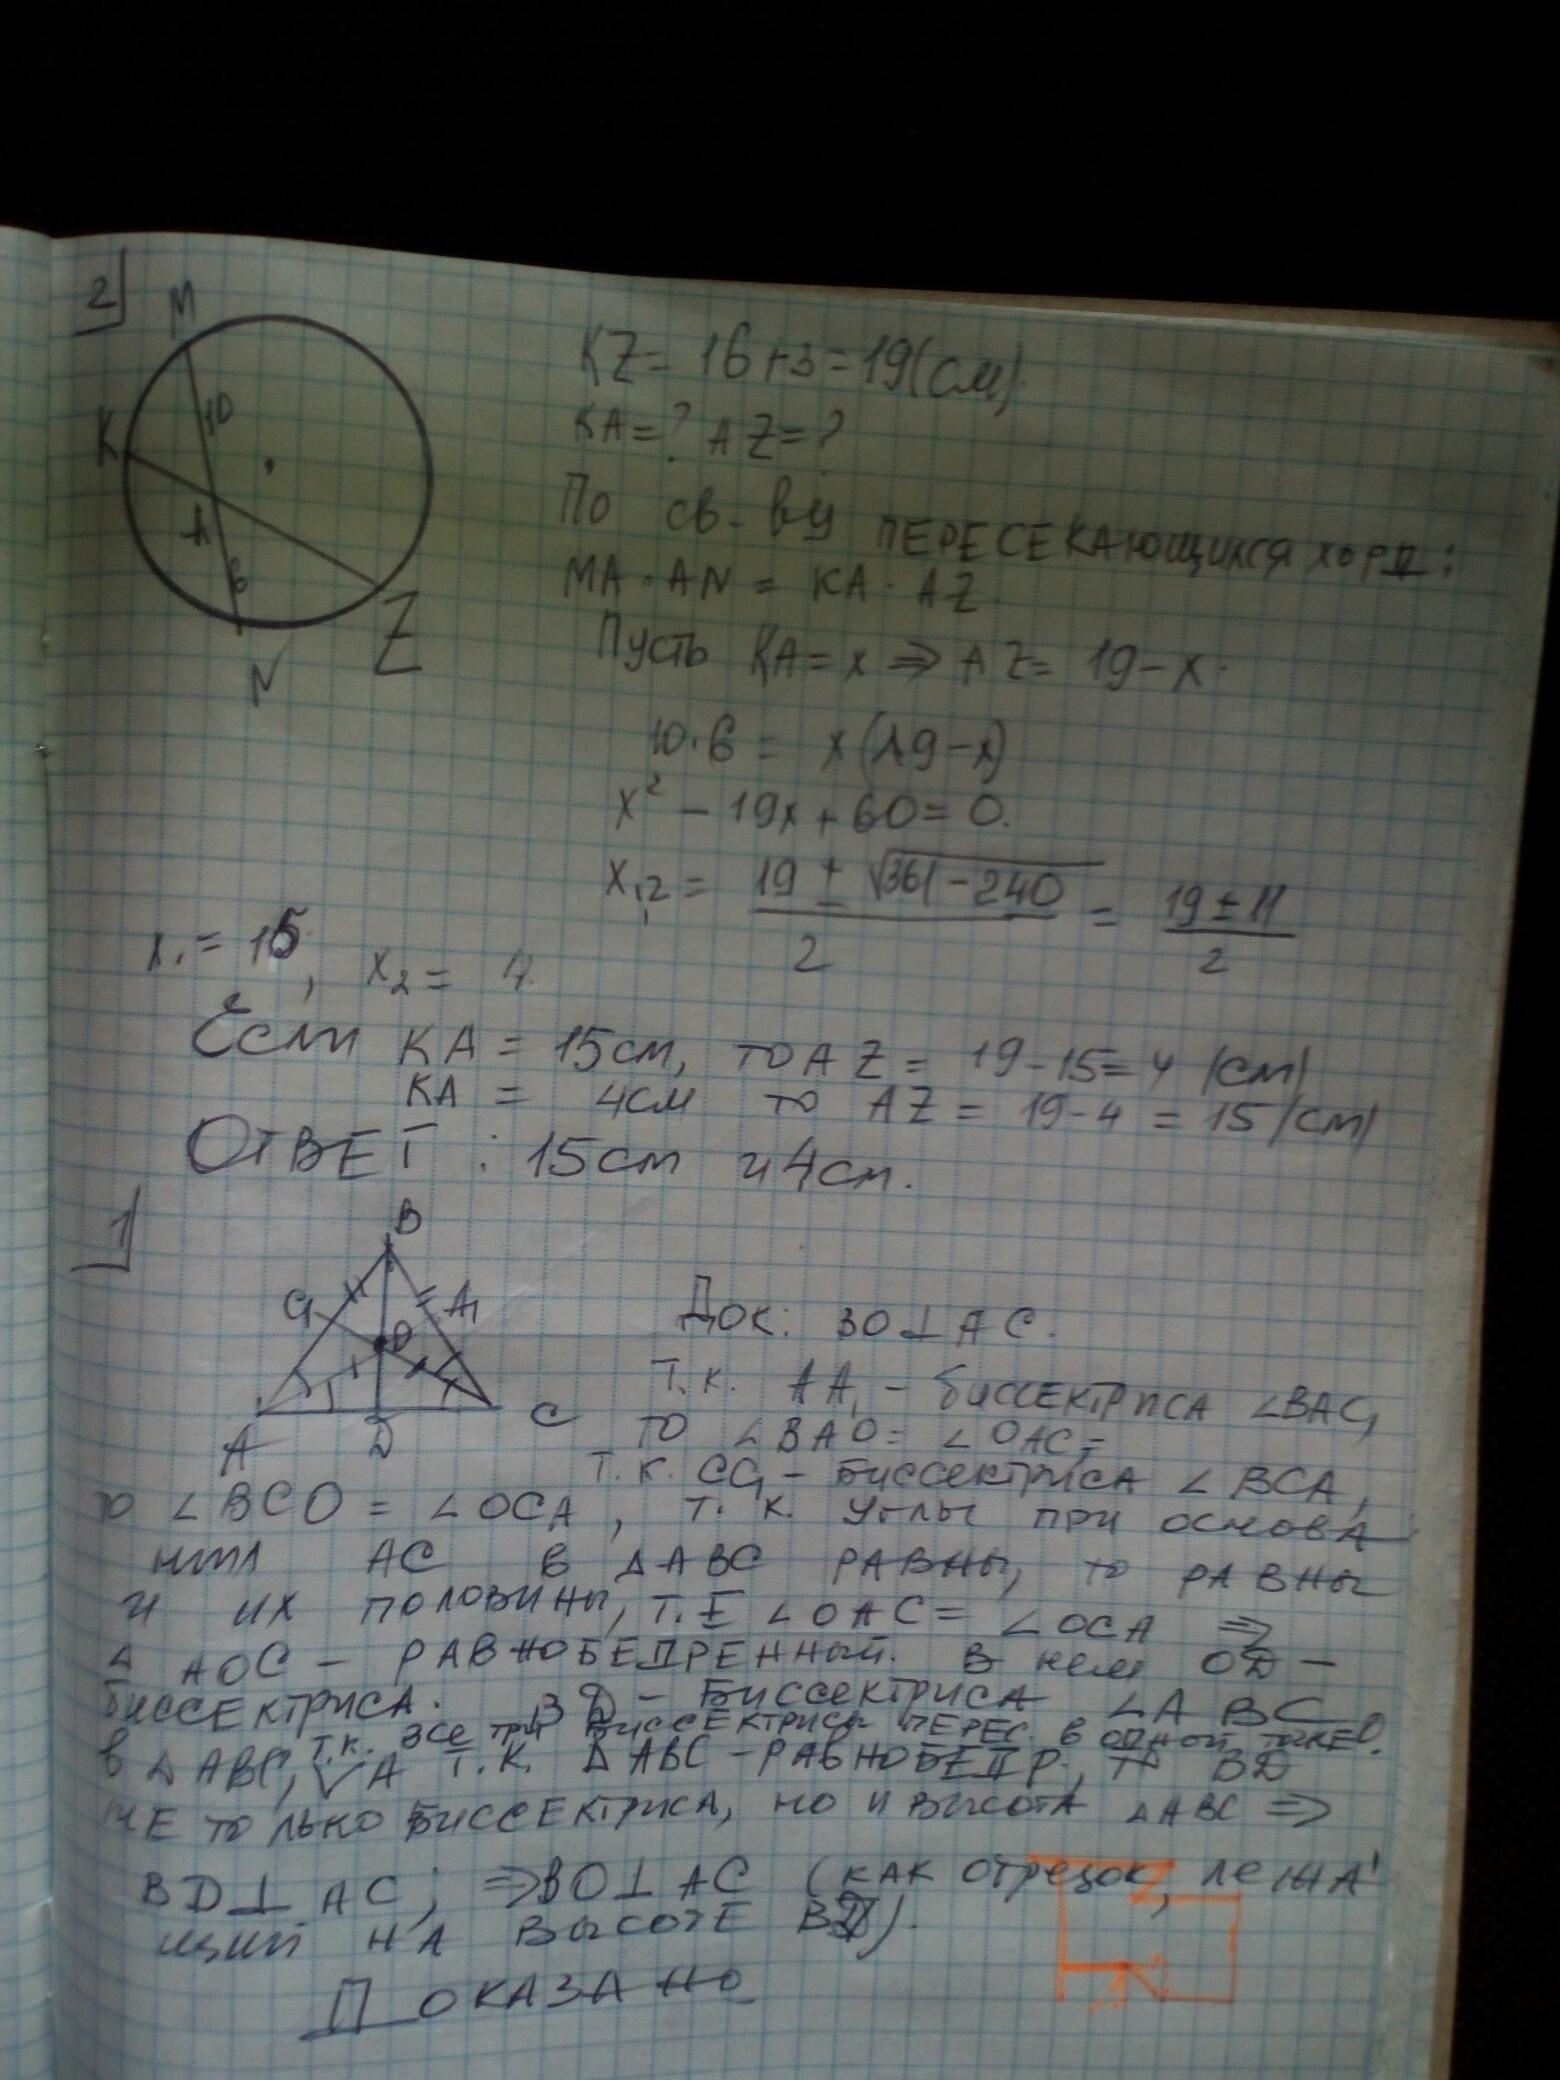 2
M
10
K
A
6
N
Z
KZ = 16+3=19(см)
KA=? AZ=?
По св-ву ПЕРЕСЕКАЮЩИХСЯ ХОРД:
MA · AN = KA · AZ.
Пусть KA = x ⇒ AZ = 19-x.
10·6 = x(19-x)
x² - 19x + 60 = 0.
x₁,₂ = (19 ± √361-240)/2 = (19 ± 11)/2
x₁ = 15, x₂ = 4.
Если KA = 15см, то AZ = 19-15=4 (см)
KA = 4см то AZ = 19-4 = 15 (см)
ОТВЕТ: 15см и 4см.
1
B
C₁
A₁
O
A
D
C
Док: BO⊥AC.
Т.К. AA₁ - биссектриса ∠BAC,
то ∠BAO = ∠OAC;
Т.К. CC₁ - биссектриса ∠BCA,
то ∠BCO = ∠OCA, т.к. углы при основа
нии AC в ΔABC РАВНЫ, то РАВНЫ
и их половины, т.Е ∠OAC = ∠OCA ⇒
Δ AOC - РАВНОБЕДРЕННЫЙ. В нем OD -
биссектриса. BD - Биссектриса ∠ABC
т.к. все три биссектрисы перес. в одной точке O.
в ΔABC, √ А т.к. ΔABC - РАВНОБЕДР., то BD
НЕ только Биссектриса, но и высота ΔABC ⇒
BD⊥AC; ⇒ BO⊥AC (как отрезок, лежа
щий на высоте BD).
ДОКАЗАНО